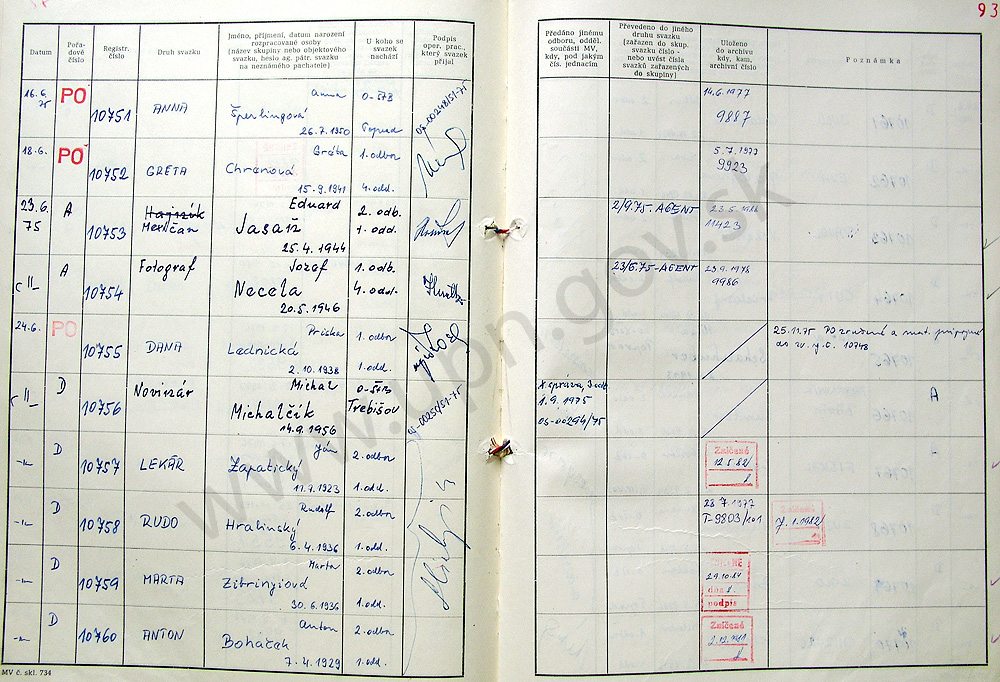 93
Datum
Pořadové číslo
Registr. číslo
Druh svazku
Jméno, příjmení, datum narození rozpracované osoby (název skupiny nebo objektového svazku, heslo ag. pátr. svazku na neznámého pachatele)
U koho se svazek nachází
Podpis oper. prac., který svazek přijal
Předáno jinému odboru, odděl. součásti MV, kdy, pod jakým čís. jednacím
Převedeno do jiného druhu svazku (zařazen do skup. svazku číslo - nebo uvést čísla svazků zařazených do skupiny)
Uloženo do archivu kdy, kam, archivní číslo
Poznámka
16.6. 75 PO 10751 ANNA
Anna
Šperlingová
26.7.1950
O-ŠTB
Poprad
OS-00248/51-75
14.6.1977
9887
18.6. PO 10752 GRETA
Gréta
Chrenová
15.9.1941
1. odbor
4. odd.
5.7.1977
9923
23.6. 75 A 10753
Meričan
Eduard
Jasaň
25.4.1944
2. odb.
1. odd.
2/9.75.-AGENT
23.5.1988
11423
-"- A 10754 Fotograf
Jozef
Necela
20.5.1946
1. odb.
4. odd.
23/6.75-AGENT
9986
24.6. PO 10755 DANA
Priska
Lednická
2.10.1938
1. odbor
1. odd.
25.11.75 PO zrušené a mat. pripojené
do zv. r.č. 10748
-"- D 10756 Novinár
Michal
Michalčík
14.9.1956
O-ŠTB
Trebišov
OS-00250/51-75
X správa, 3 odb.
1.9.1975
OS-00294/75
A
-"- D 10757 LEKÁR
Ján
Zapatický
11.7.1923
2. odbor
1. odd.
Zničené
12.5.82
-"- D 10758 RUDO
Rudolf
Hralinský
6.4.1936
2. odbor
1. odd.
28.7.1977
T-9803/101
-"- D 10759 MARTA
Marta
Zibrinyiová
30.6.1936
2. odbor
1. odd.
29.10.84
dňa
podpis
-"- D 10760 ANTON
Anton
Boháček
7.4.1929
2. odbor
1. odd.
Zničené
MV č. skl. 734
www.upn.gov.sk